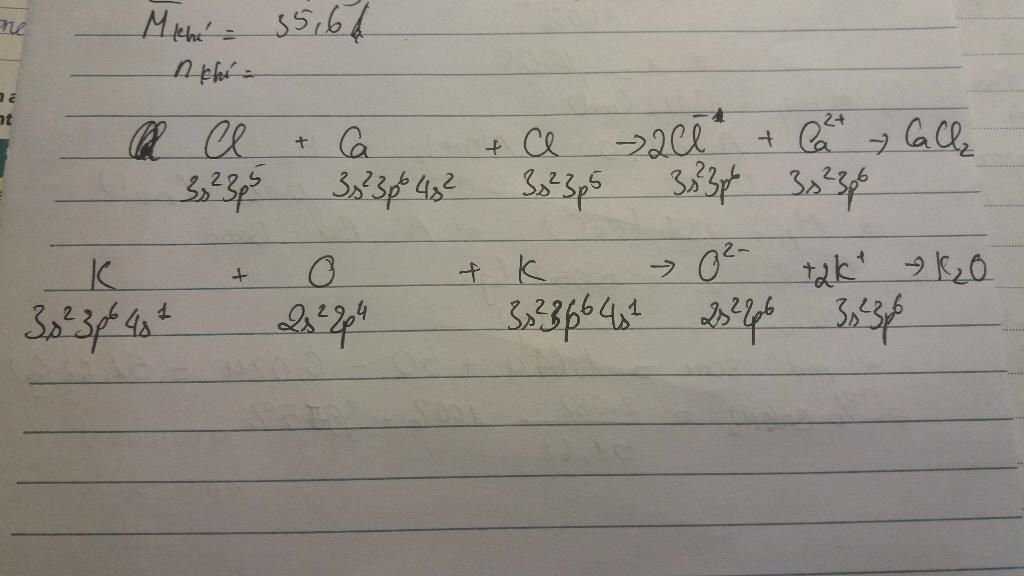 M khí = 35,6
n khí =
Cl + Ca + Cl → 2Cl⁻ + Ca²⁺ → CaCl₂
3s²3p⁵ 3s²3p⁶4s² 3s²3p⁵ 3s²3p⁶ 3s²3p⁶
K + O + K → O²⁻ +2K⁺ → K₂O
3s²3p⁶4s¹ 2s²2p⁴ 3s²3p⁶4s¹ 2s²2p⁶ 3s²3p⁶